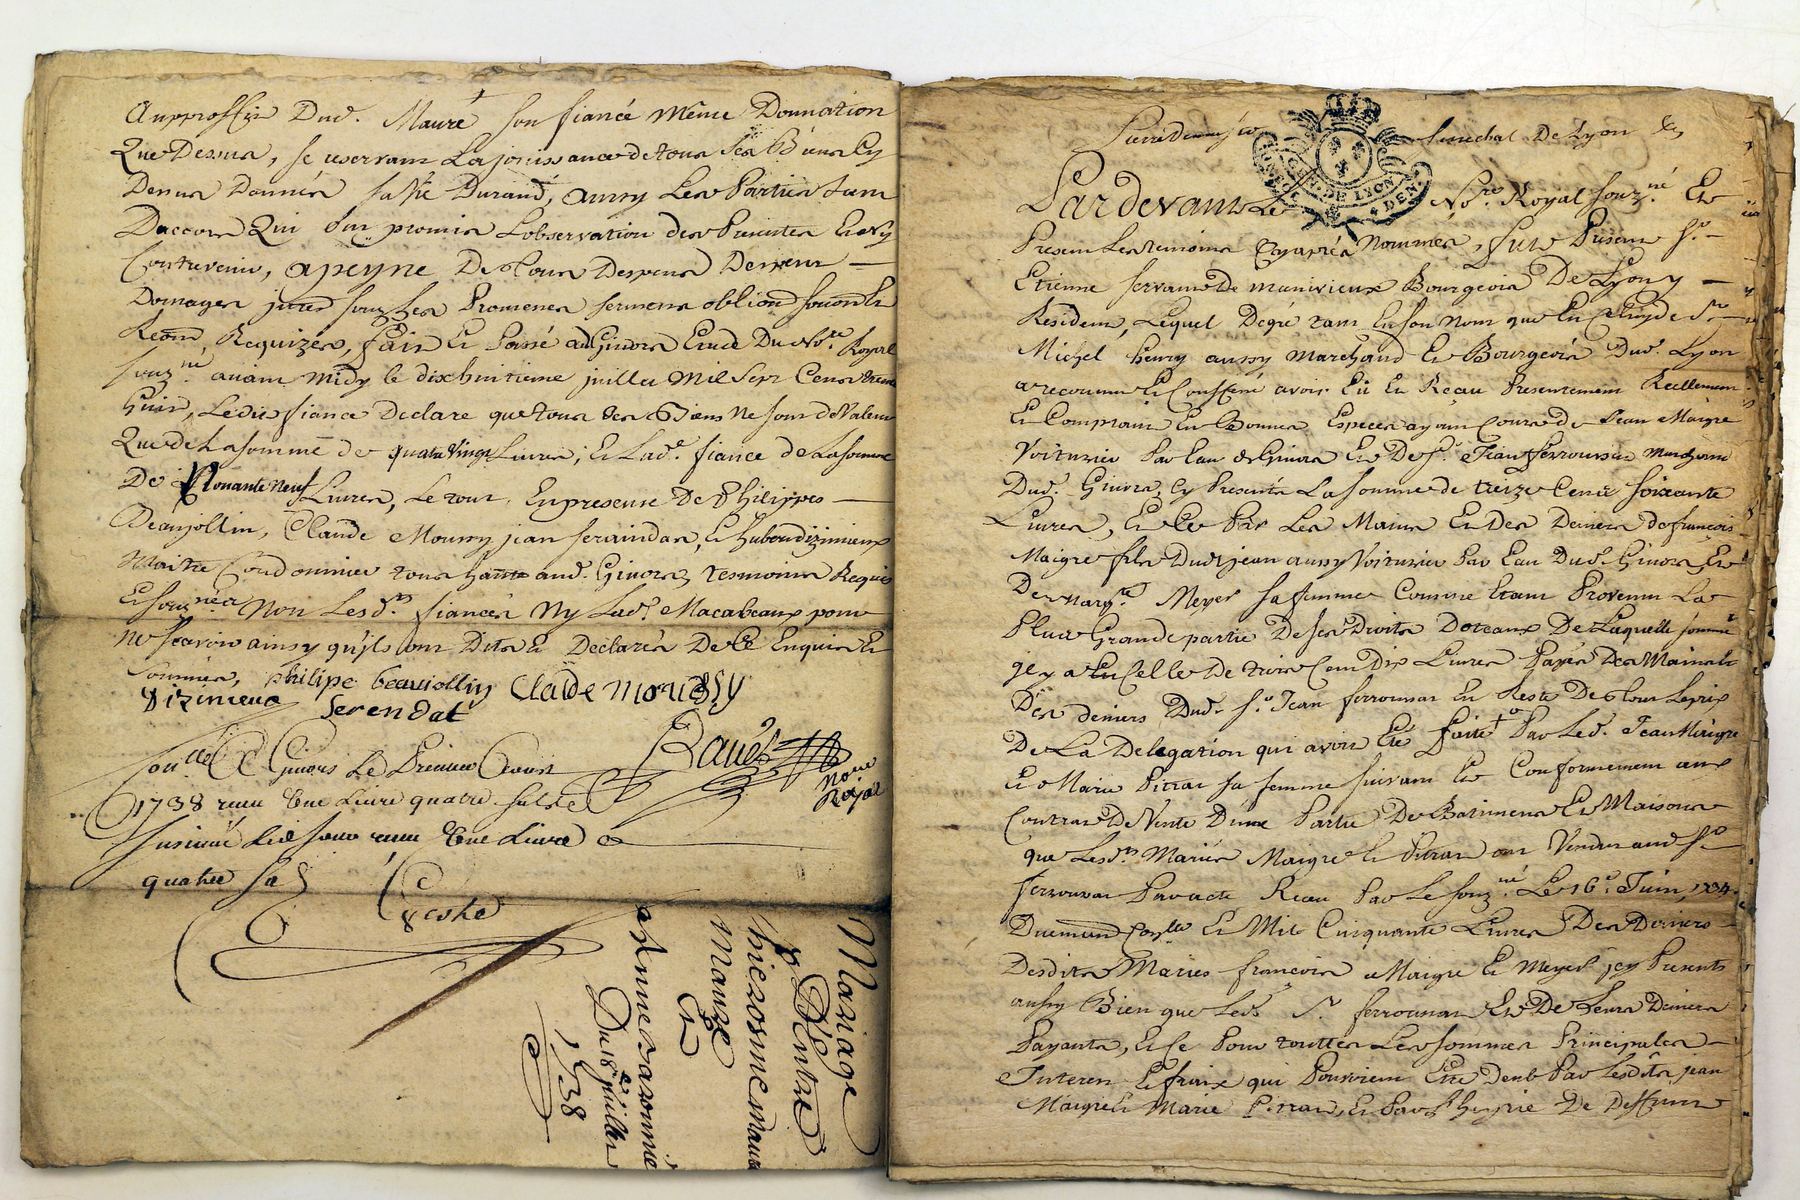 Du d. Mauré son fiancé même Donnation
Que Dessus, se reservant La jouissance de tous ses Biens Cy
Dessus Donnés sa vie Durand, aussy Les Parties sont
D'accord Qui ont promis L'observation des Presentes Et n'y
Contrevenir, apeyne De tous Despens
Domages
Requizes, fait Et Passé aud Givors Etude Du No.re Royal
souz.né avant midy le dixhuitieme juillet Mil Sept Cents trente
huit, Ledit fiancé Declare que tous ses Biens ne sont de Valeur
Que de La somme de quatre vingt Livres, Et Lad.e fiancé de La somme
De Nonante neuf Livres, Le tout, En presence De Philippes
Beaujollin, Claude Moussy jean seraindas, Et hubert dizimieux
Maitre Cordonnier tous aud. Givors, tesmoins Requis
Et souz.nés Non Lesd.ts fiancés Ny Lad.e Macabeaux pour
ne scavoir ainsy qu'ils ont Dits Et Declarés De Ce Enquis Et
Sommés, philipe beaujollin Claude moussy
dizimieux serendat
Ravet
No.re Royal
Con.llé A Givors Le Premier Aoust
1738 recu Une Livre quatre sols
Insinué led jour recu Une Livre
quatre s.
Mariage
D'Entre
hierosme maure
Maure
Et
Anne
Du 18.e juillet
1738
Senechal De Lyon &
GEN. DE LYON
Pardevant Le No.re Royal souz.né Et
Present Les temoins Cy aprés Nommés, fut Present s.r
Etienne servant de manivieux Bourgeois De Lyon y
Resident, Lequel Degré tant En son Nom que En Celuy de s.r
Michel henry aussy Marchand Et Bourgeois Dud. Lyon
a reconnu Et Confessé avoir Eü Et Receu Presentement Reellement
Et Comptant En Bonnes Especes ayant Cours de Jean Maigre
Voiturier Par Eau de Givors Et De s.r Jean ferrousat Marchand
Dud. Givors, Cy Presents La somme de treize Cents soixante
Livres, Et Ce Par Les Mains Et Des Deniers de françois
Maigre fils Dud. jean aussy Voiturier Par Eau Dud. Givors Et
De Marg.te Meyer sa femme Comme Etant Provenu La
Plus Grande partie De ses Droits Doteaux De Laquelle somme
il y a Eu Celle De trois Cent Dix Livres Payés Des Mains Et
Des deniers Dud. s.r Jean ferrousat En Reste De tout Le prix
De La Delegation qui avoit Eté faite Par Led. Jean Maigre
Et Marie Pitrat sa femme suivant Et Conformement aux
Contrat De Vente D'une Partie De Batiments Et Maisons
que Lesd.ts Mariés Maigre Et Pitrat ont Vendus aud s.r
ferrousat Par acte Receu Par Le souz.né Le 16.e Juin, 1734
Duement Con.llé Et Mil Cinquante Livres Des Deniers
Desdits Mariés françois Maigre Et Meyer icy Presents
aussy Bien que Led. s.r ferrousat Et De Leurs Deniers
Payants, Et Ce Pour touttes Les sommes Principales
Interets Et fraix qui Pouvoient Etre Deub Par Lesdits jean
Maigre Et Marie Pitrat, Et Par De Deffunt